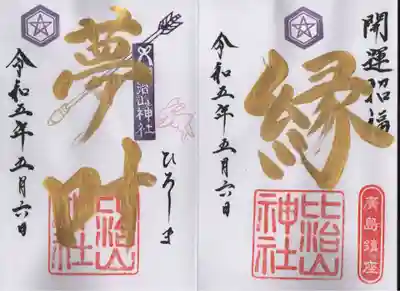 開運招福
廣島鎮座
縁
比治山
神社
令和五年五月六日
ひろしま
治山神社
夢叶
比治山
神社
令和五年五月六日